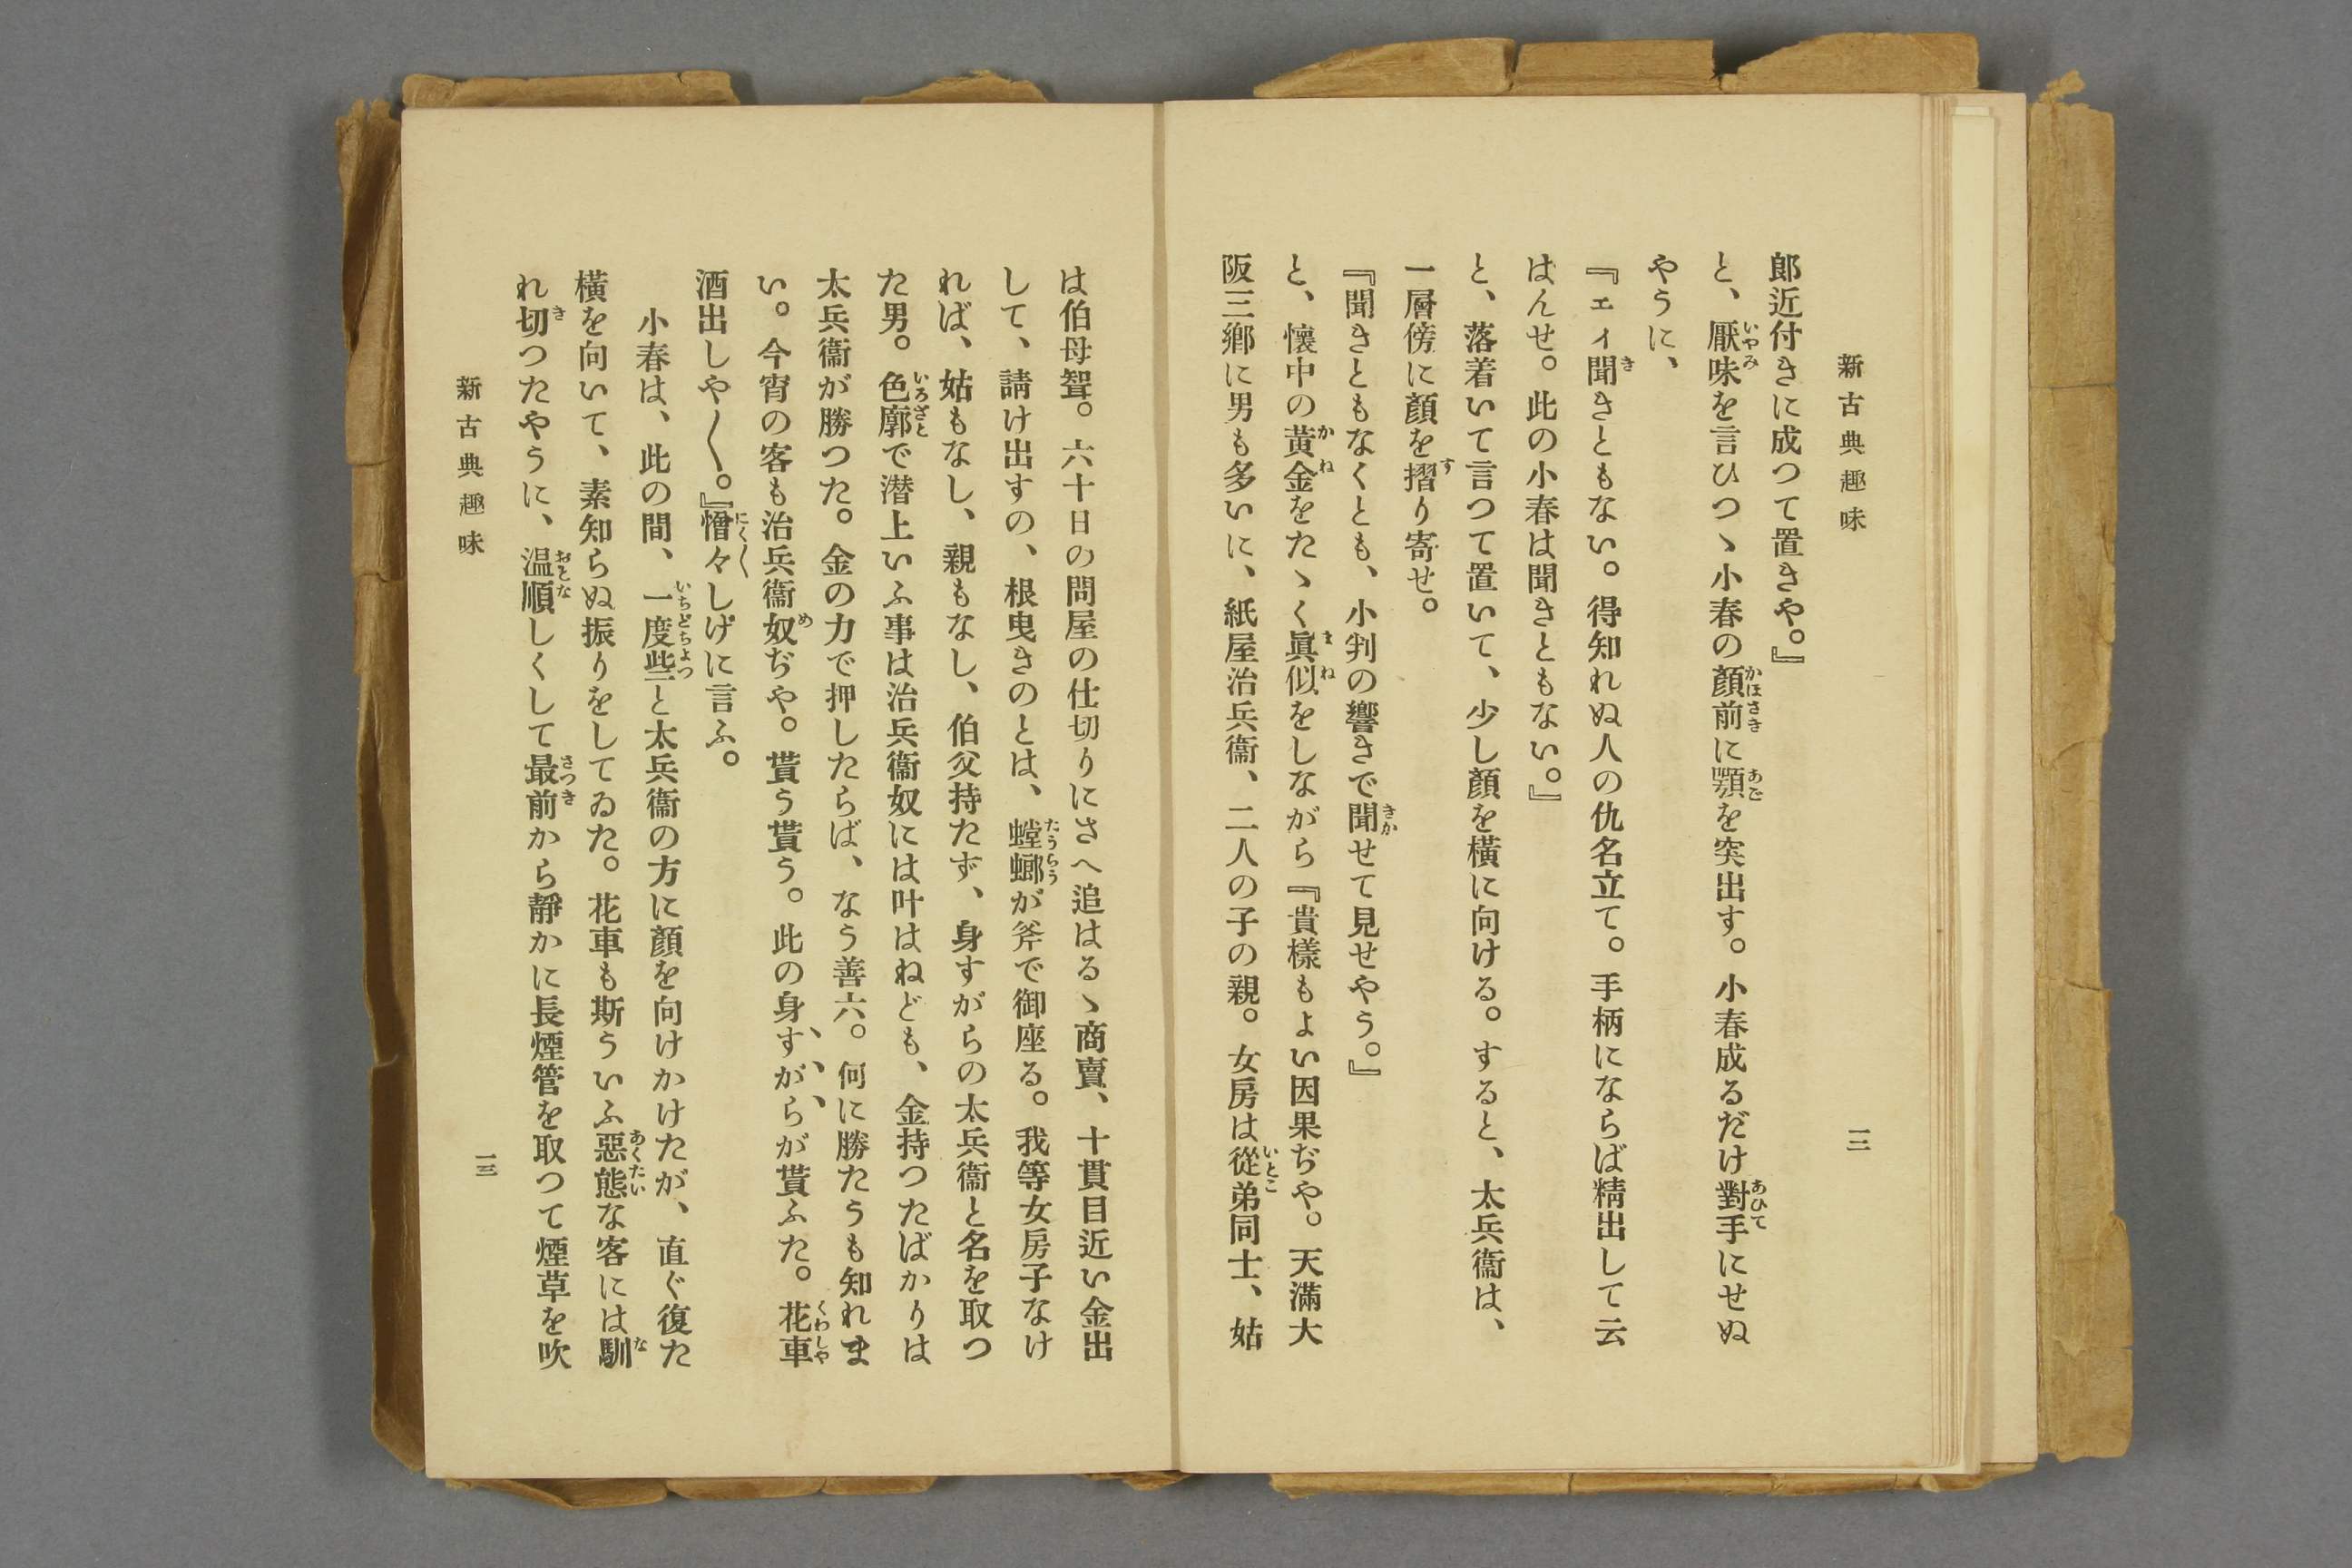 新古典趣味
一二
郎近付きに成つて置きや。』
と、厭味を言ひつゝ小春の顏前に顎を突出す。小春成るだけ對手にせぬ
やうに、
『エィ聞きともない。得知れぬ人の仇名立て。手柄にならば精出して云
はんせ。此の小春は聞きともない。』
と、落着いて言つて置いて、少し顏を横に向ける。すると、太兵衞は、
一層傍に顏を摺り寄せ。
『聞きともなくとも、小判の響きで聞せて見せやう。』
と、懷中の黄金をたゝく眞似をしながら『貴樣もよい因果ぢや。天滿大
阪三鄕に男も多いに、紙屋治兵衞、二人の子の親。女房は從弟同士、姑
は伯母聟。六十日の問屋の仕切りにさへ追はるゝ商賣、十貫目近い金出
して、請け出すの、根曳きのとは、螳螂が斧で御座る。我等女房子なけ
れば、姑もなし、親もなし、伯父持たず、身すがらの太兵衞と名を取つ
た男。色廓で潜上いふ事は治兵衞奴には叶はねども、金持つたばかりは
太兵衞が勝つた。金の力で押したらば、なう善六。何に勝たうも知れま
い。今宵の客も治兵衞奴ぢや。貰う貰う。此の身すがらが貰ふた。花車
酒出しや〱。』憎々しげに言ふ。
小春は、此の間、一度些と太兵衞の方に顏を向けかけたが、直ぐ復た
横を向いて、素知らぬ振りをしてゐた。花車も斯ういふ惡態な客には馴
れ切つたやうに、温順しくして最前から靜かに長煙管を取つて煙草を吹
新古典趣味
一三